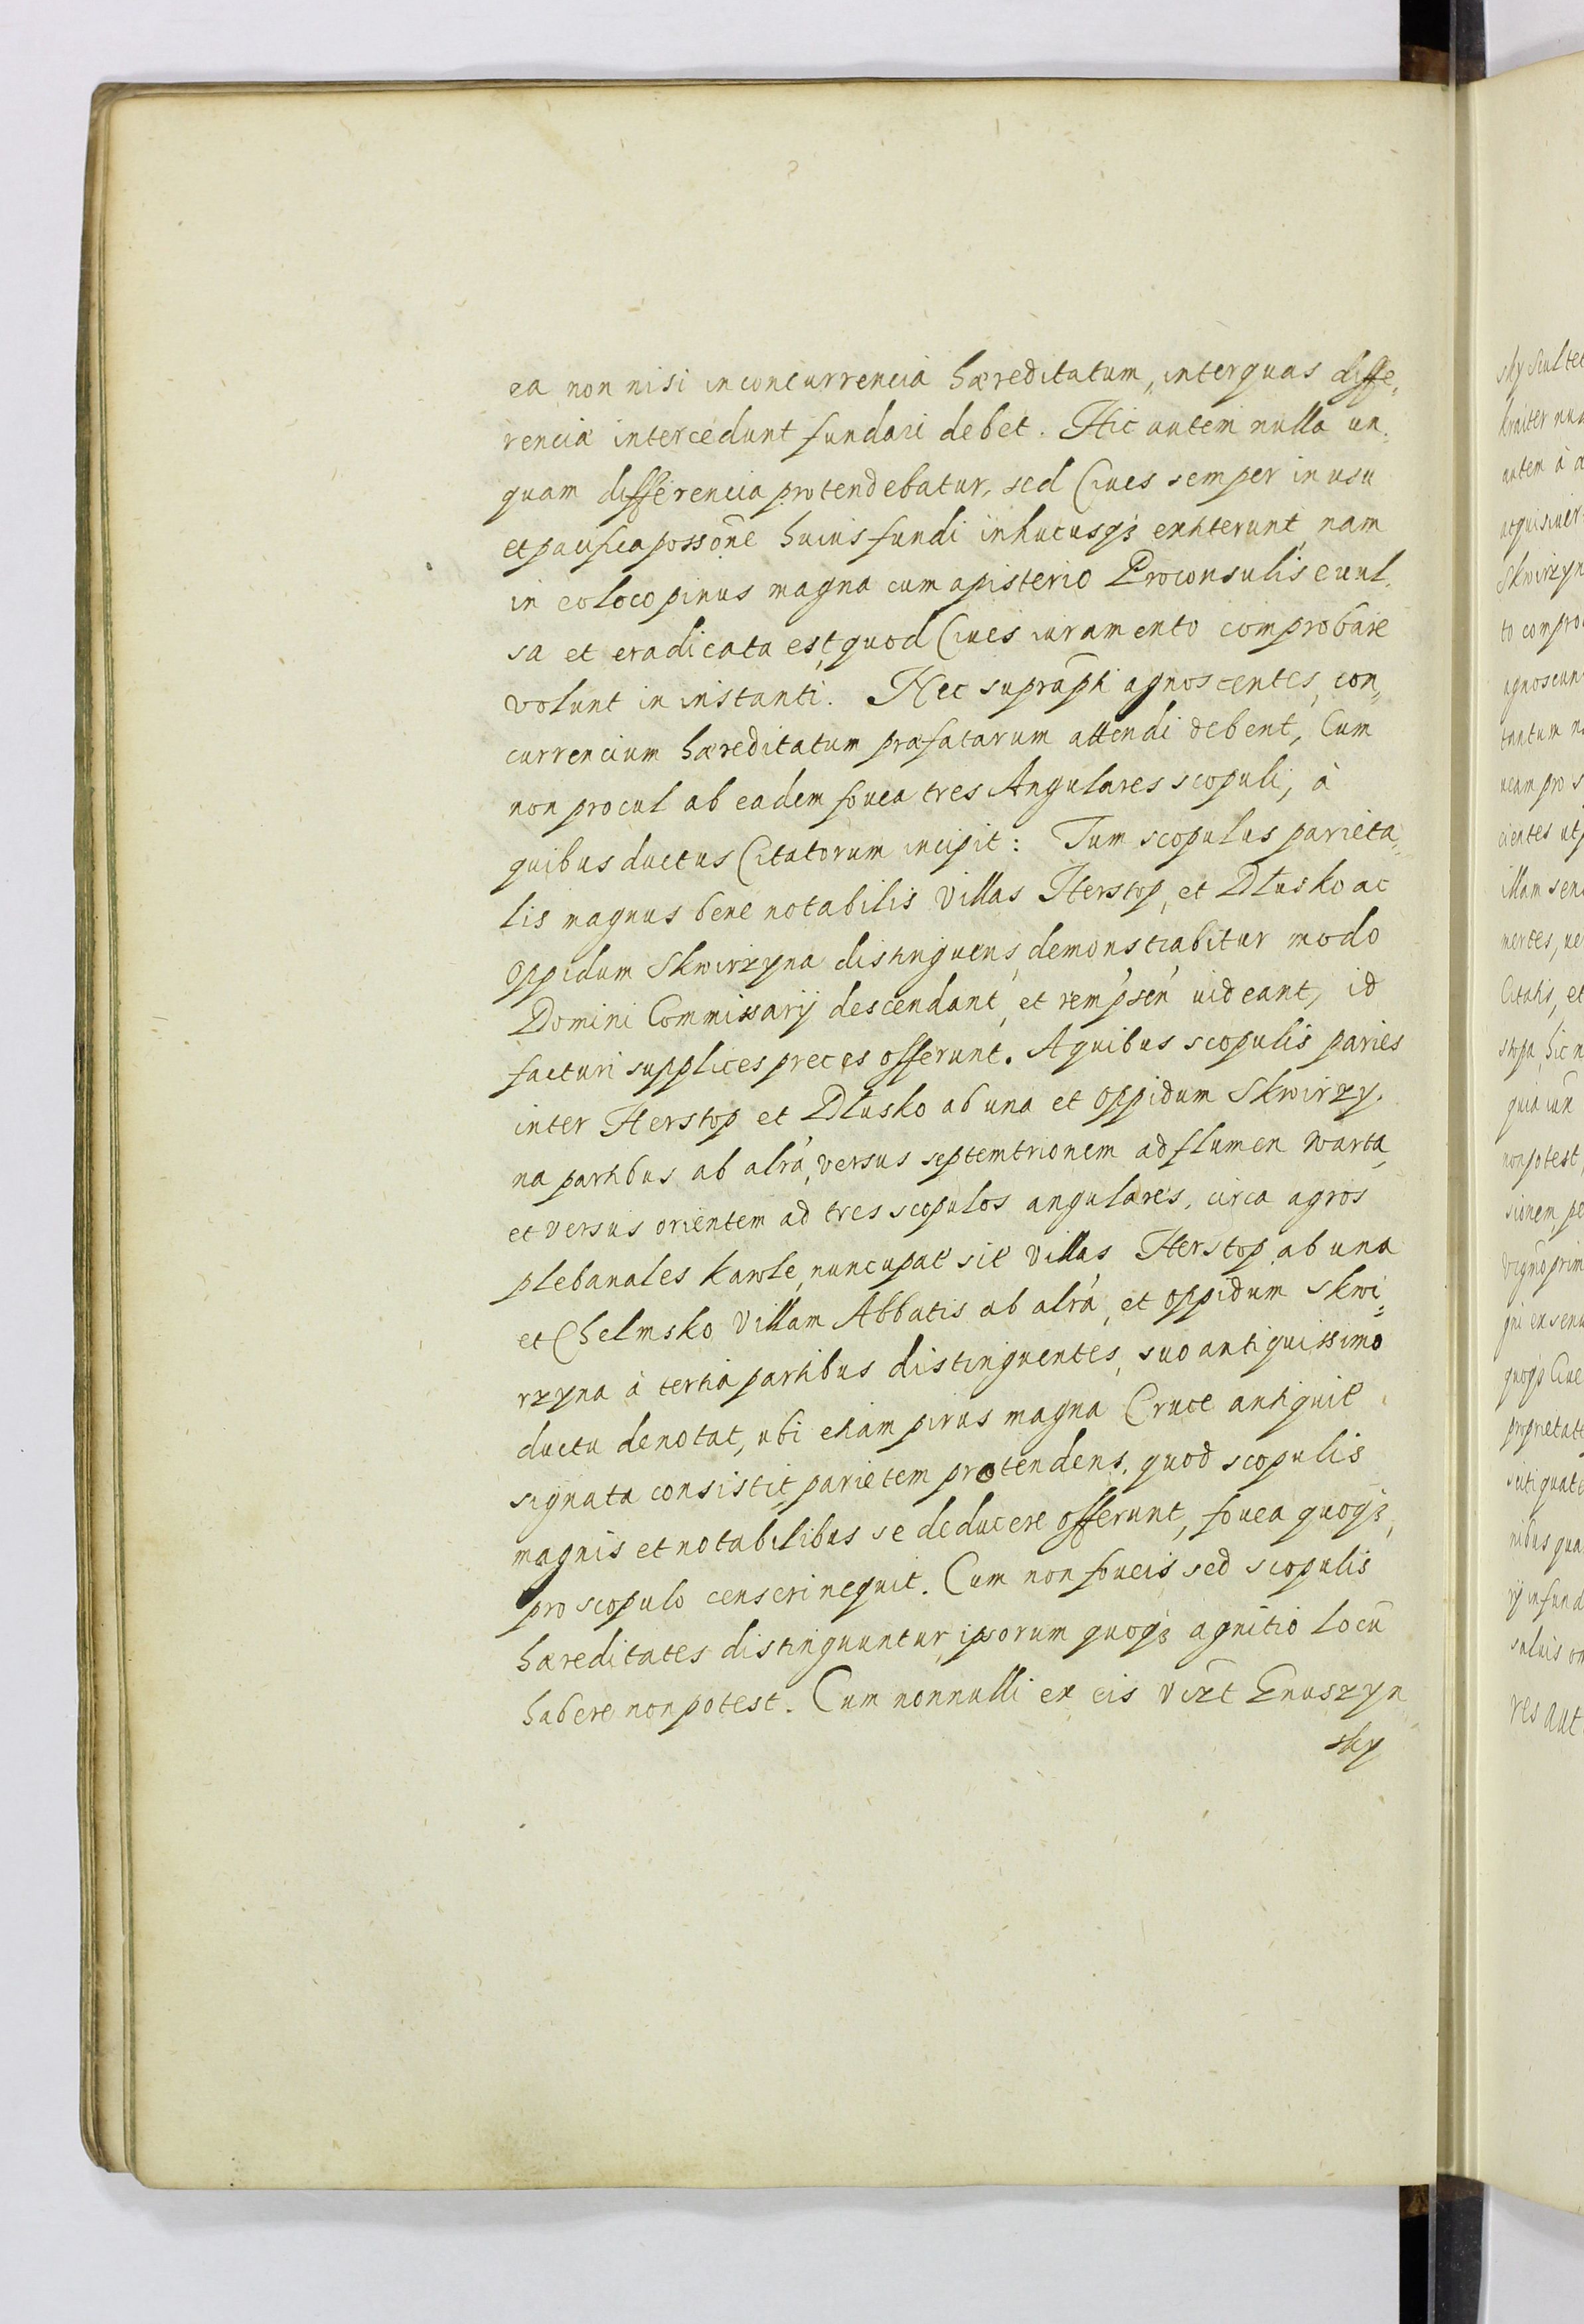 ea non nisi in concurrencia hæreditatum, interquas diffe„
rencia intercedunt fundari debet. Hic autem nulla un„
quam differencia protendebatur, sed Ciues semper in usu
et pacifica possõne huius fundi inhucusqȝ extiterunt, nam
in eo loco pinus magna cum apisterio Proconsulis euul„
sa et eradicata est, quod Ciues iuramento comprobare
volunt in instanti. Nec supraph̃i agnoscentes, con„
currencium hæreditatum præfatarum attendi debent, Cum
non procul ab eadem fouea tres Angulares scopuli, à
quibus ductus Citatorum incipit: Tum scopulus parieta„
lis magnus bene notabilis villas Herstop, et Dłusko ac
oppidum Skwirzyna distinguens, demonstrabitur modo
Domini Commissarij descendant, et rem p'sen' uideant, id
facturi supplices preces offerunt. A quibus scopulis paries
inter Herstop et Dłusko ab una et oppidum Skwirzy„
na partibus ab alra', versus septemtrionem ad flumen Warta,
et versus orientem ad tres scopulos angulares, circa agros
plebanales Kawle, nuncupat sit villas Herstop ab una
et Chelmsko villam Abbatis ab alra', et oppidum Skwi„
rzyna à tertia partibus distinguentes, suo antiquissimo
ductu denotat, ubi etiam pirus magna Cruce antiquit
signata consistit, parietem protendens, quod scopulis
magnis et notabilibus se deducere offerunt, fouea quoqȝ,
pro scopulo censeri nequit. Cum non foueis sed scopulis
hæreditates distinguuntur, ipsorum quoqȝ agnitio locũ
habere non potest. Cum nonnulli ex eis vizt Knuszyn
sky